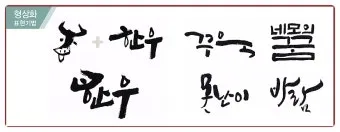 형상화
표현기법
+ 한우 네모의
꿈
한우 못난이 바람